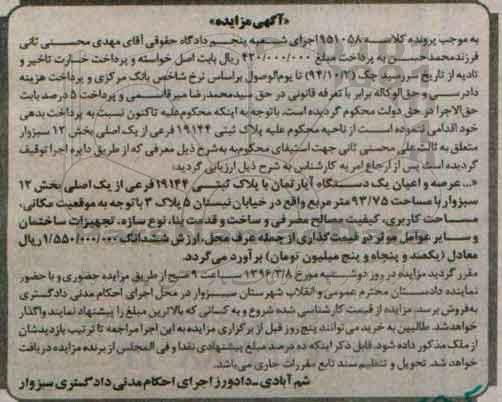 «آگهی مزایده»
به موجب پرونده کلاسه ۹۵۱۰۵۸ اجرای شعبه پنجم دادگاه حقوقی آقای مهدی محسنی ثانی
فرزند محمدحسن به پرداخت مبلغ ۴۲۰/۰۰۰/۰۰۰ ریال بابت اصل خواسته و پرداخت خسارت تاخیر و
تادیه از تاریخ سررسید چک (۹۴/۱۰/۲) تا یوم‌الوصول براساس نرخ شاخص بانک مرکزی و پرداخت هزینه
دادرسی و حق‌الوکاله برابر با تعرفه قانونی در حق سیدمحمدرضا میرقاسمی و پرداخت ۵ درصد بابت
حق‌الاجرا در حق دولت محکوم گردیده است. باتوجه به اینکه محکوم‌علیه تاکنون نسبت به پرداخت بدهی
خود اقدامی ننموده است از ناحیه محکوم علیه پلاک ثبتی ۱۹۱۴۴ فرعی از یک اصلی بخش ۱۲ سبزوار
متعلق به ثالث علی محسنی ثانی جهت استیفای محکوم‌به به‌شرح ذیل معرفی که از طریق دایره اجرا توقیف
گردیده است پس از ارجاع امر به کارشناس به شرح ذیل ارزیابی گردید:
«... عرصه و اعیان یک دستگاه آپارتمان با پلاک ثبتی ۱۹۱۴۴ فرعی از یک اصلی بخش ۱۲
سبزوار با مساحت ۹۳/۷۵ متر مربع واقع در خیابان نیستان ۵ پلاک ۳ با توجه به موقعیت مکانی،
مساحت کاربری، کیفیت مصالح مصرفی و ساخت و قدمت بنا، نوع سازه، تجهیزات ساختمان
و سایر عوامل موثر در قیمت‌گذاری از جمله عرف محل، ارزش ششدانگ ۱/۵۵۰/۰۰۰/۰۰۰ ریال
معادل (یکصد و پنجاه و پنج میلیون تومان) برآورد می‌گردد.
مقرر گردید مزایده در روز دوشنبه مورخ ۱۳۹۶/۳/۸ ساعت ۹ صبح از طریق مزایده حضوری و با حضور
نماینده دادستان محترم عمومی و انقلاب شهرستان سبزوار در محل اجرای احکام مدنی دادگستری
به‌فروش برسد. مزایده از قیمت کارشناسی شده شروع و به کسانی که بالاترین مبلغ را پیشنهاد نمایند واگذار
خواهد شد. طالبین به خرید می‌توانند پنج روز قبل از برگزاری مزایده به این اجرا مراجعه تا ترتیب بازدیدشان
از ملک مذکور داده شود. قابل ذکر اینکه ده درصد مبلغ پیشنهادی نقدا و فی المجلس از برنده مزایده دریافت
خواهد شد. تحویل و تنظیم سند تابع مقررات جاری می‌باشد.
شم‌آبادی ـ دادورز اجرای احکام مدنی دادگستری سبزوار